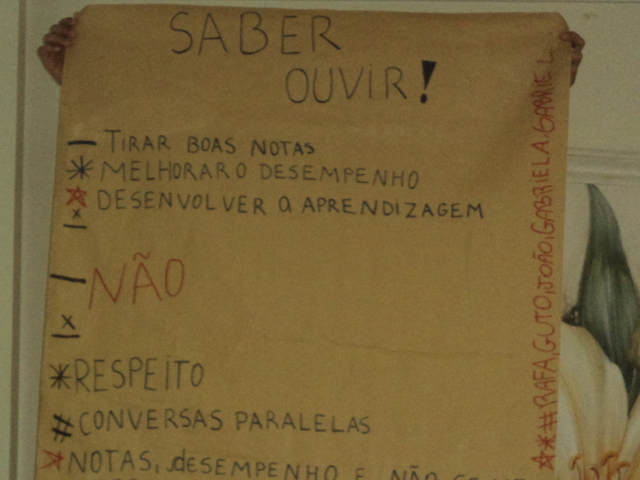 SABER
OUVIR!
— TIRAR BOAS NOTAS
* MELHORAR O DESEMPENHO
☆ DESENVOLVER A APRENDIZAGEM
x
— NÃO
x
* RESPEITO
# CONVERSAS PARALELAS
☆ NOTAS, DESEMPENHO E NÃO
☆*# RAFA, GUTO, JOÃO, GABRIELA, GABRIEL